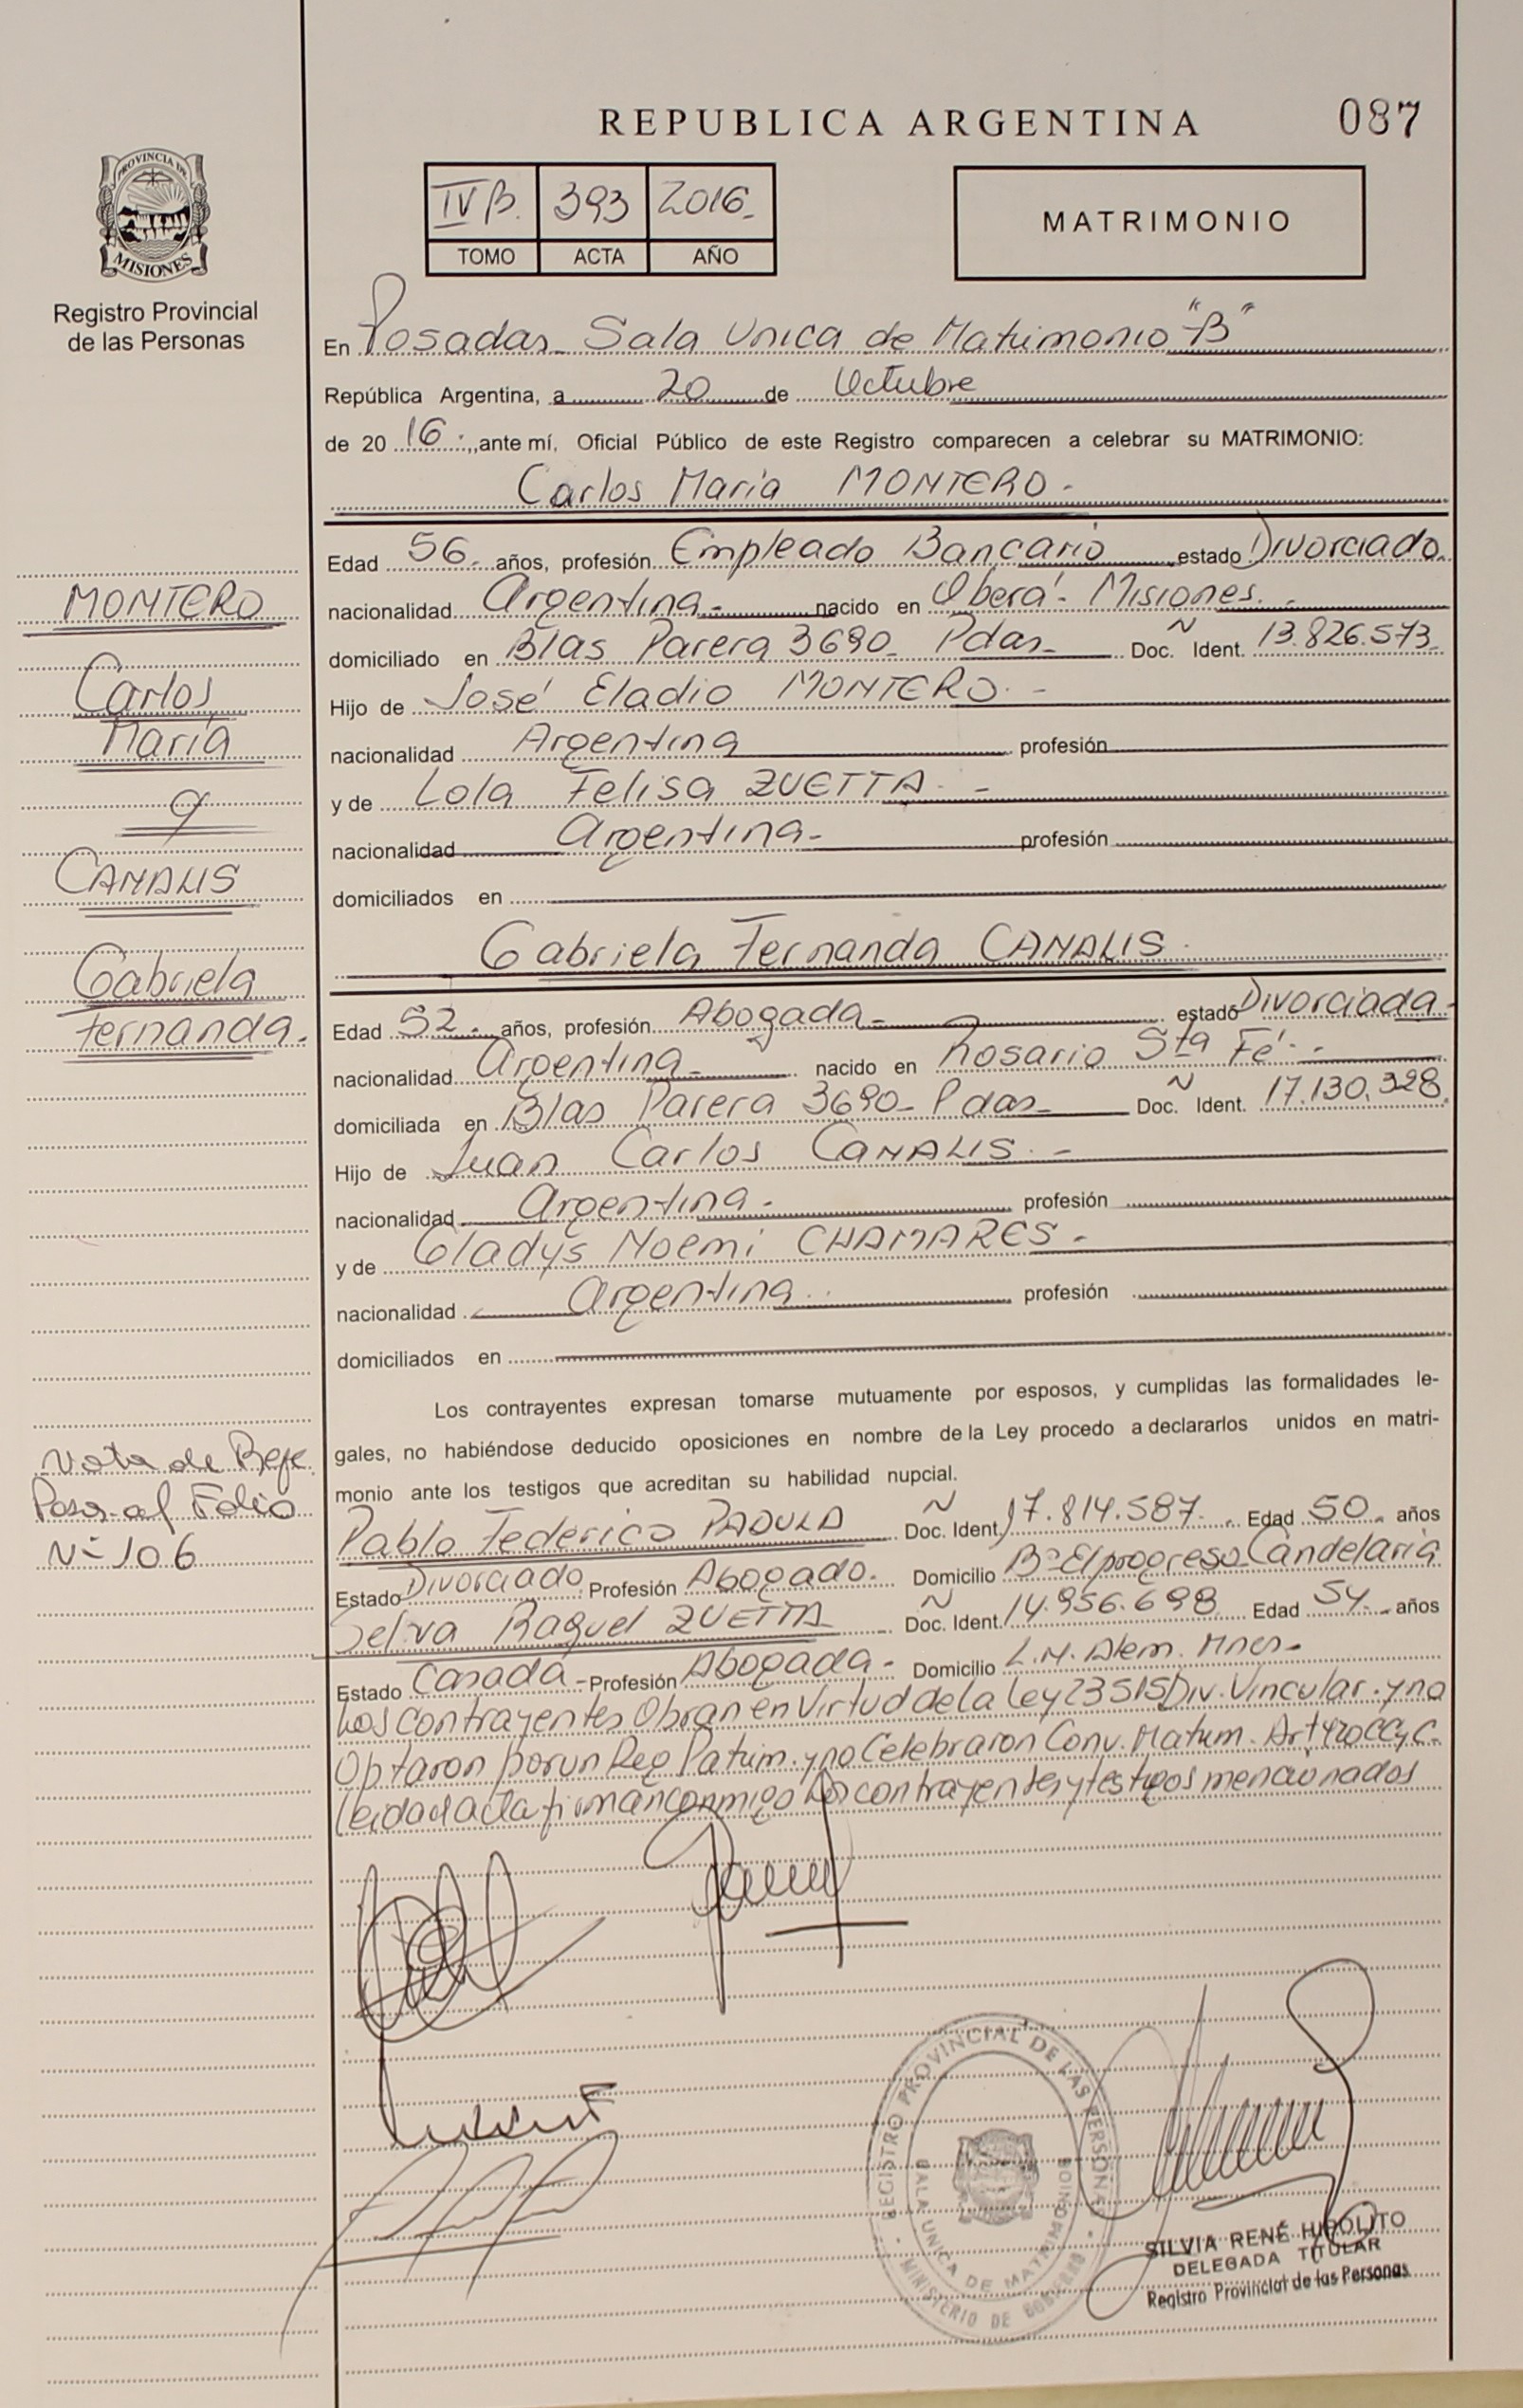 REPUBLICA ARGENTINA
087
PROVINCIA DE
MISIONES
Registro Provincial
de las Personas
IV B. 393 2016-
TOMO ACTA AÑO
MATRIMONIO
En Posadas- Sala Unica de Matrimonio "B"
República Argentina, a 20 de Octubre
de 20 16.-, ante mí, Oficial Público de este Registro comparecen a celebrar su MATRIMONIO:
Carlos María MONTERO-
Edad 56- años, profesión Empleado Bancario estado Divorciado.
nacionalidad Argentina- nacido en Oberá- Misiones.-
domiciliado en Blas Parera 3690- Pdas- Doc. Ñ Ident. 13.826.573-
Hijo de José Eladio MONTERO.-
nacionalidad Argentina profesión
y de Lola Felisa ZUETTA.-
nacionalidad Argentina- profesión
domiciliados en
Gabriela Fernanda CANALIS.
Edad 52.- años, profesión Abogada- estado Divorciada-
nacionalidad Argentina- nacido en Rosario Sta Fé.-
domiciliada en Blas Parera 3690- Pdas- Doc. Ñ Ident. 17.130.328.
Hijo de Juan Carlos CANALIS.-
nacionalidad Argentina- profesión
y de Gladys Noemi CHAMARES-
nacionalidad Argentina.. profesión
domiciliados en
Los contrayentes expresan tomarse mutuamente por esposos, y cumplidas las formalidades le-
gales, no habiéndose deducido oposiciones en nombre de la Ley procedo a declararlos unidos en matri-
monio ante los testigos que acreditan su habilidad nupcial.
Pablo Federico PADULA Doc. Ñ Ident. 17.814.587- Edad 50- años
Estado Divorciado Profesión Abogado- Domicilio B° El progreso-Candelaria
Selva Raquel ZUETTA Doc. Ñ Ident. 14.956.698 Edad 54- años
Estado Casada- Profesión Abogada- Domicilio L.N. Alem. Mnes-
Los contrayentes Obran en Virtud de la Ley 23515 Div. Vincular. y no
Optaron por un Reg Patrim. y no Celebraron Conv. Matrim. Art 420 CCyC.
Leida el acta firman conmigo los contrayentes y testigos mencionados
MONTERO
Carlos
María
y
CANALIS
Gabriela
Fernanda.
Nota de Refe.
Pasa al Folio
N- 106
REGISTRO PROVINCIAL DE LAS PERSONAS
SALA UNICA DE MATRIMONIOS
MINISTERIO DE GOBIERNO
SILVIA RENÉ HIPOLITO
DELEGADA TITULAR
Registro Provincial de las Personas